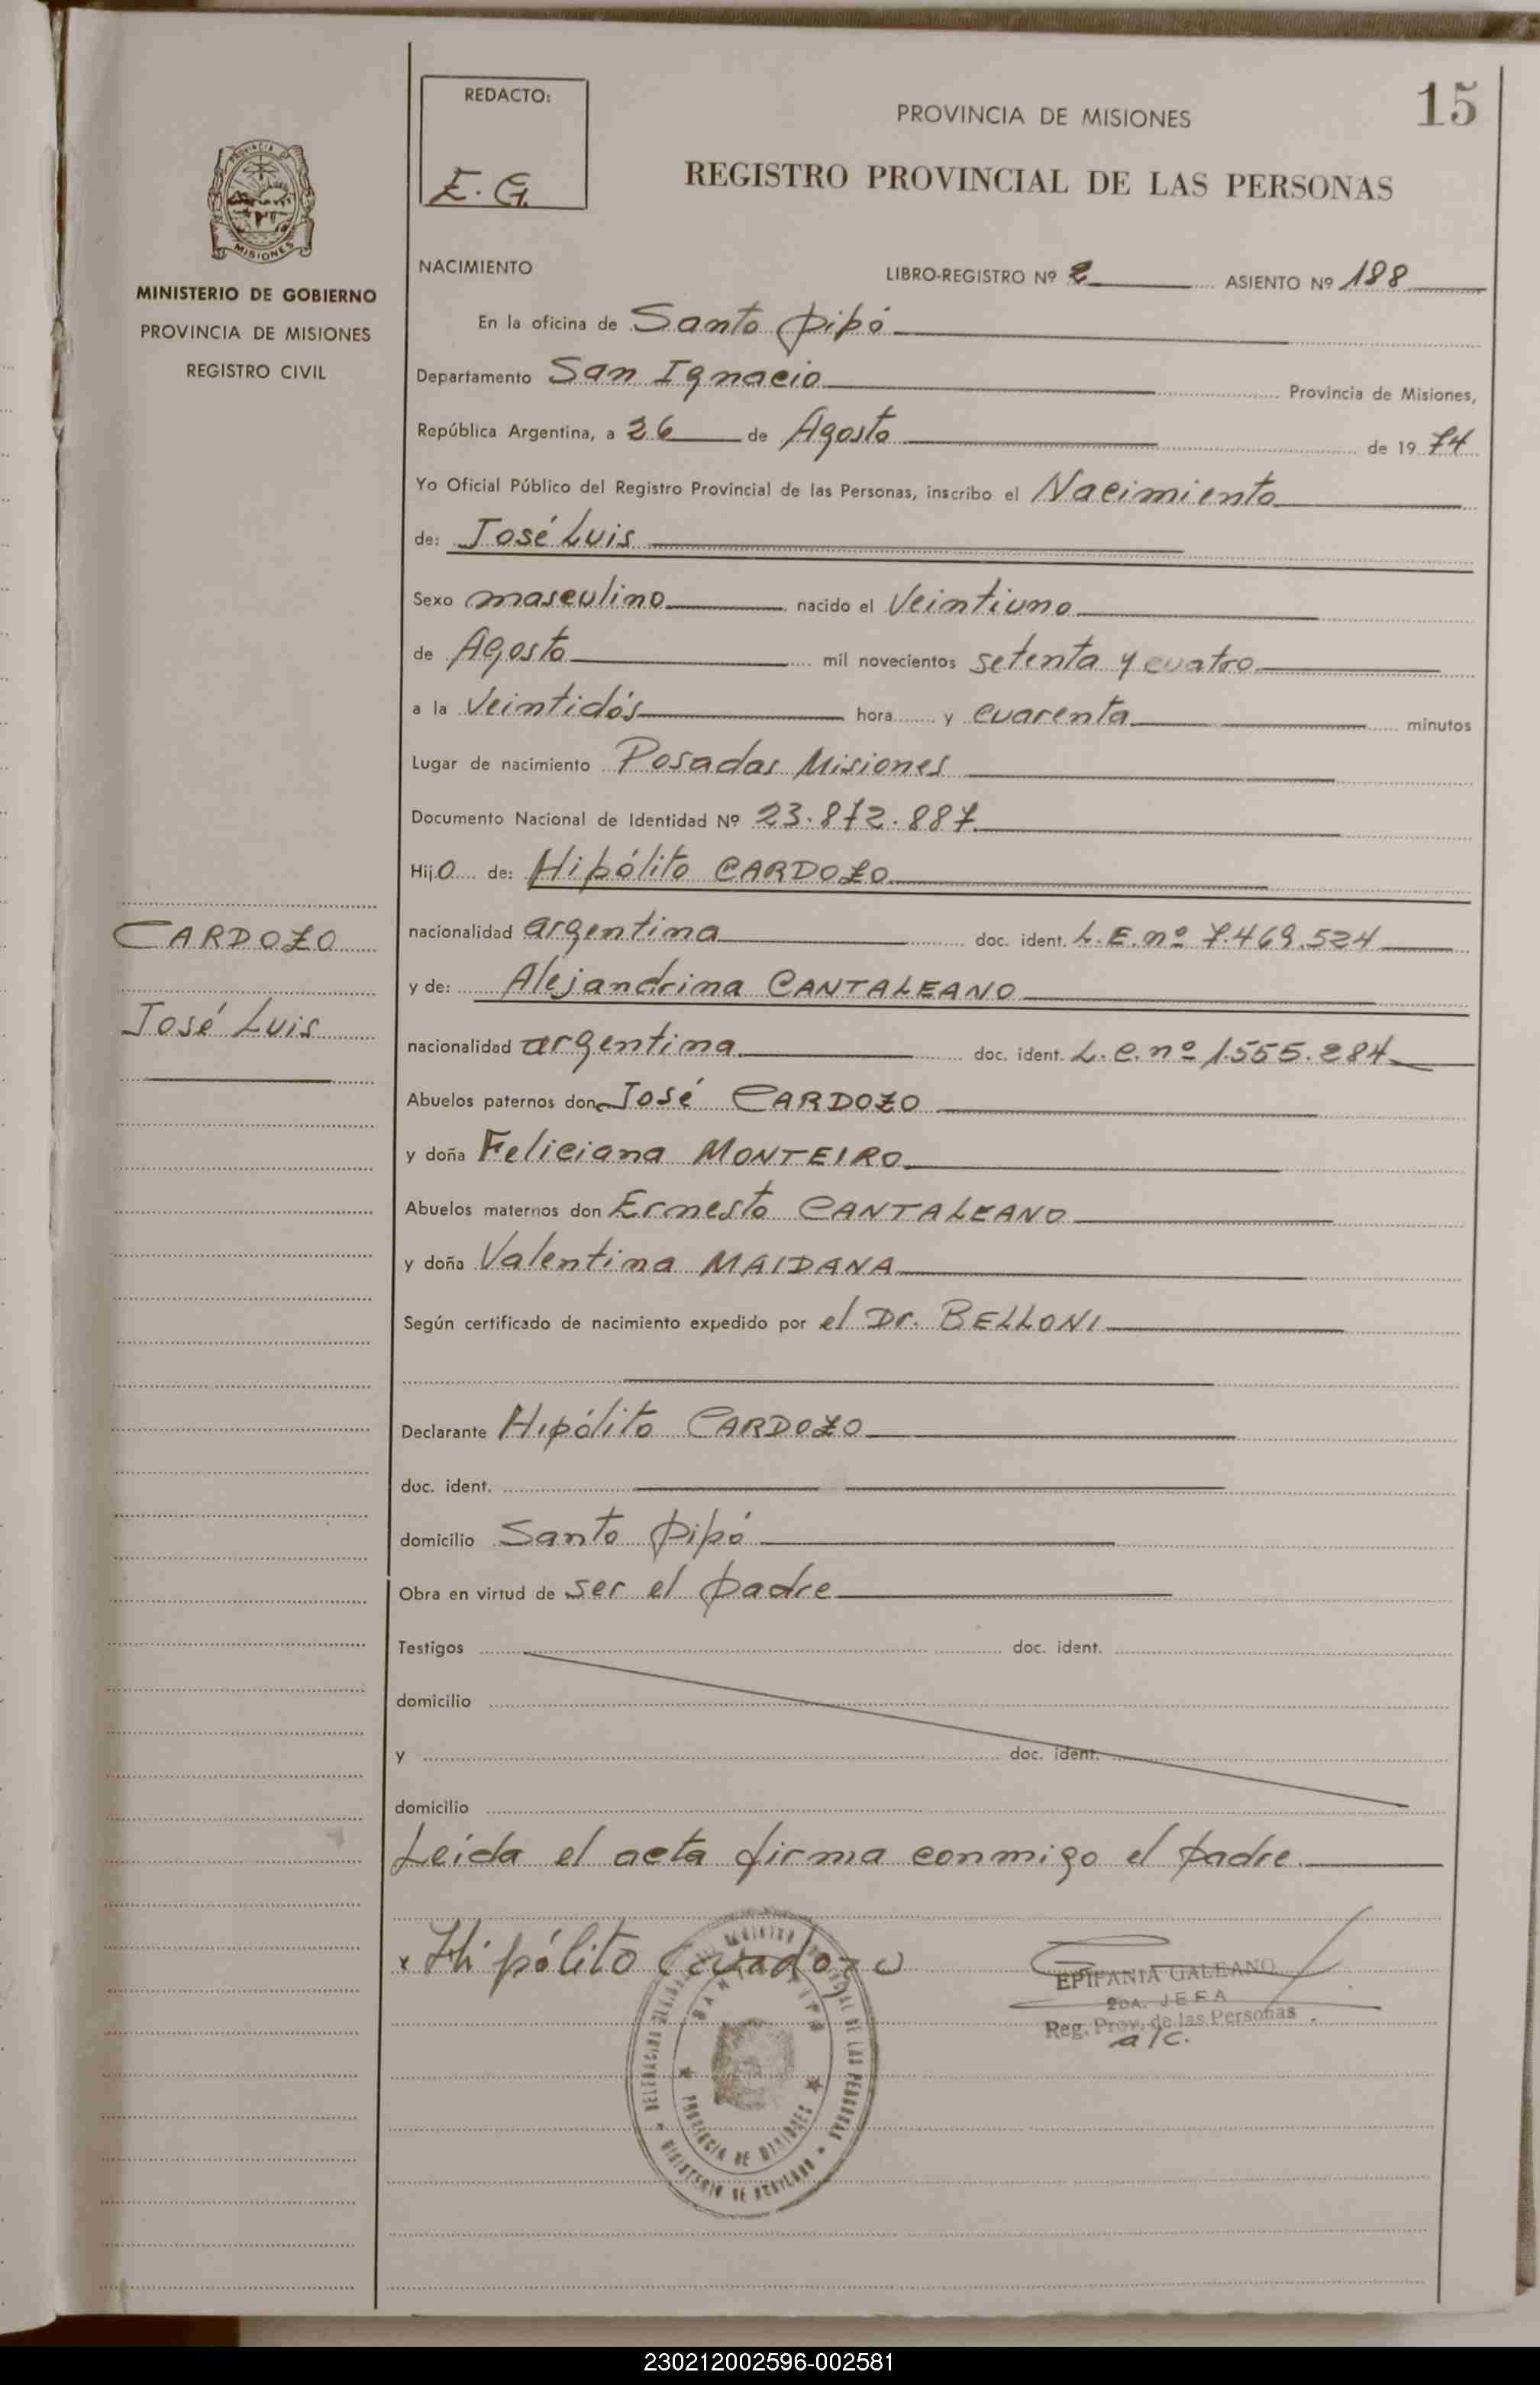 15
REDACTO:
E. G.
PROVINCIA DE MISIONES
REGISTRO PROVINCIAL DE LAS PERSONAS
PROVINCIA DE
MISIONES
MINISTERIO DE GOBIERNO
PROVINCIA DE MISIONES
REGISTRO CIVIL
NACIMIENTO LIBRO-REGISTRO Nº 2 ASIENTO Nº 188
En la oficina de Santo Pipó
Departamento San Ignacio Provincia de Misiones,
República Argentina, a 26 de Agosto de 19 74
Yo Oficial Público del Registro Provincial de las Personas, inscribo el Nacimiento
de: José Luis
Sexo masculino nacido el Veintiuno
de Agosto mil novecientos setenta y cuatro
a la Veintidós hora y cuarenta minutos
Lugar de nacimiento Posadas Misiones
Documento Nacional de Identidad Nº 23.872.887
Hijo de: Hipólito CARDOZO
nacionalidad argentina doc. ident. L.E. nº 7.469.524
y de: Alejandrina CANTALEANO
nacionalidad argentina doc. ident. L.C. nº 1.555.284
Abuelos paternos don José CARDOZO
y doña Feliciana MONTEIRO
Abuelos maternos don Ernesto CANTALEANO
y doña Valentina MAIDANA
Según certificado de nacimiento expedido por el Dr. BELLONI
Declarante Hipólito CARDOZO
doc. ident.
domicilio Santo Pipó
Obra en virtud de ser el padre
Testigos doc. ident.
domicilio
y doc. ident.
domicilio
Leída el acta firma conmigo el padre.
CARDOZO
José Luis
x Hipólito Cardozo
EPIFANIA GALEANO
2DA. JEFA
Reg. Prov. de las Personas
a/c.
SANTO PIPO
PROVINCIA DE MISIONES
230212002596-002581